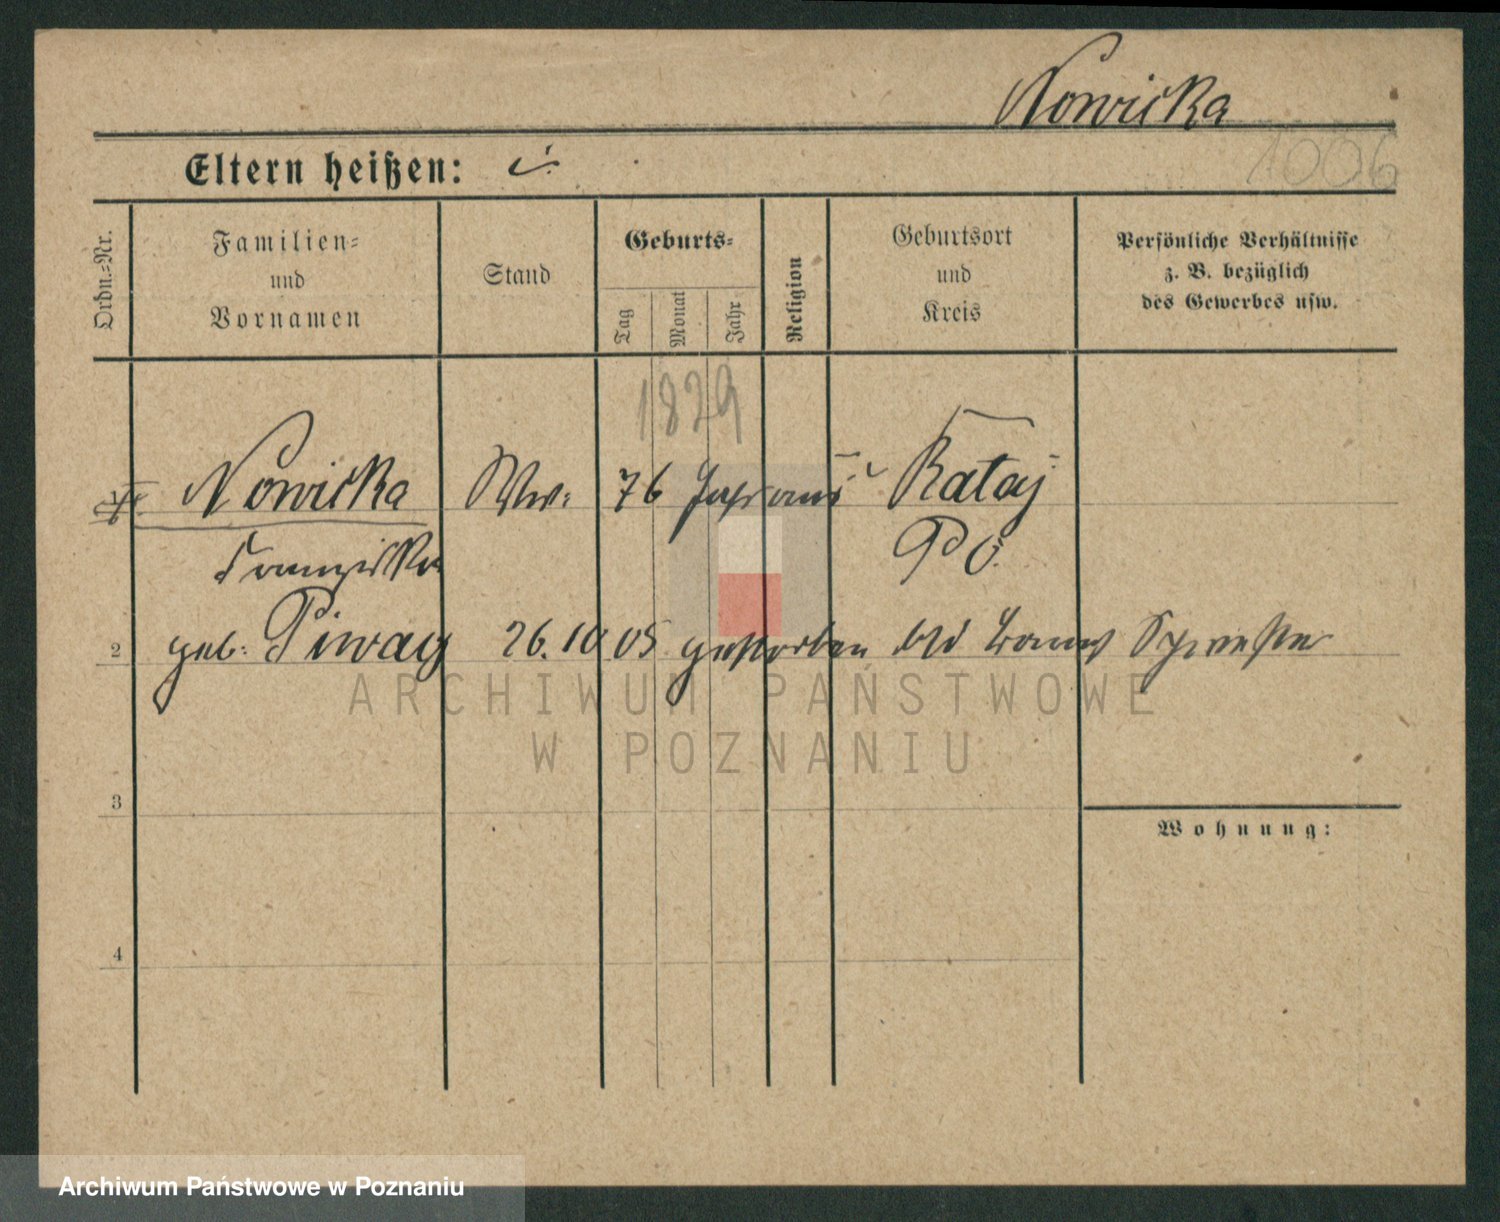 Nowicka
1006
Eltern heißen:
Ordn.=Nr.
Familien=
und
Vornamen
Stand
Geburts=
Tag
Monat
Jahr
Religion
Geburtsort
und
Kreis
Persönliche Verhältnisse
z. B. bezüglich
des Gewerbes usw.
1829
Nowicka Ww: 76 Jahr Rataj
Franziska PO.
2 geb: Piwag 26. 10 05 gestorben
3
Wohnung:
4
ARCHIWUM PAŃSTWOWE
W POZNANIU
Archiwum Państwowe w Poznaniu